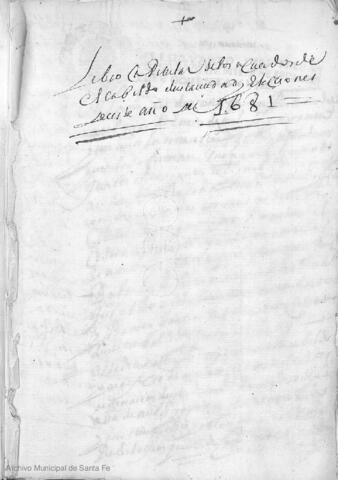 +
Libro Capitular de los acuerdos de
el cabildo de esta ciudad y elecciones
de este año de 1681
Archivo Municipal de Santa Fe